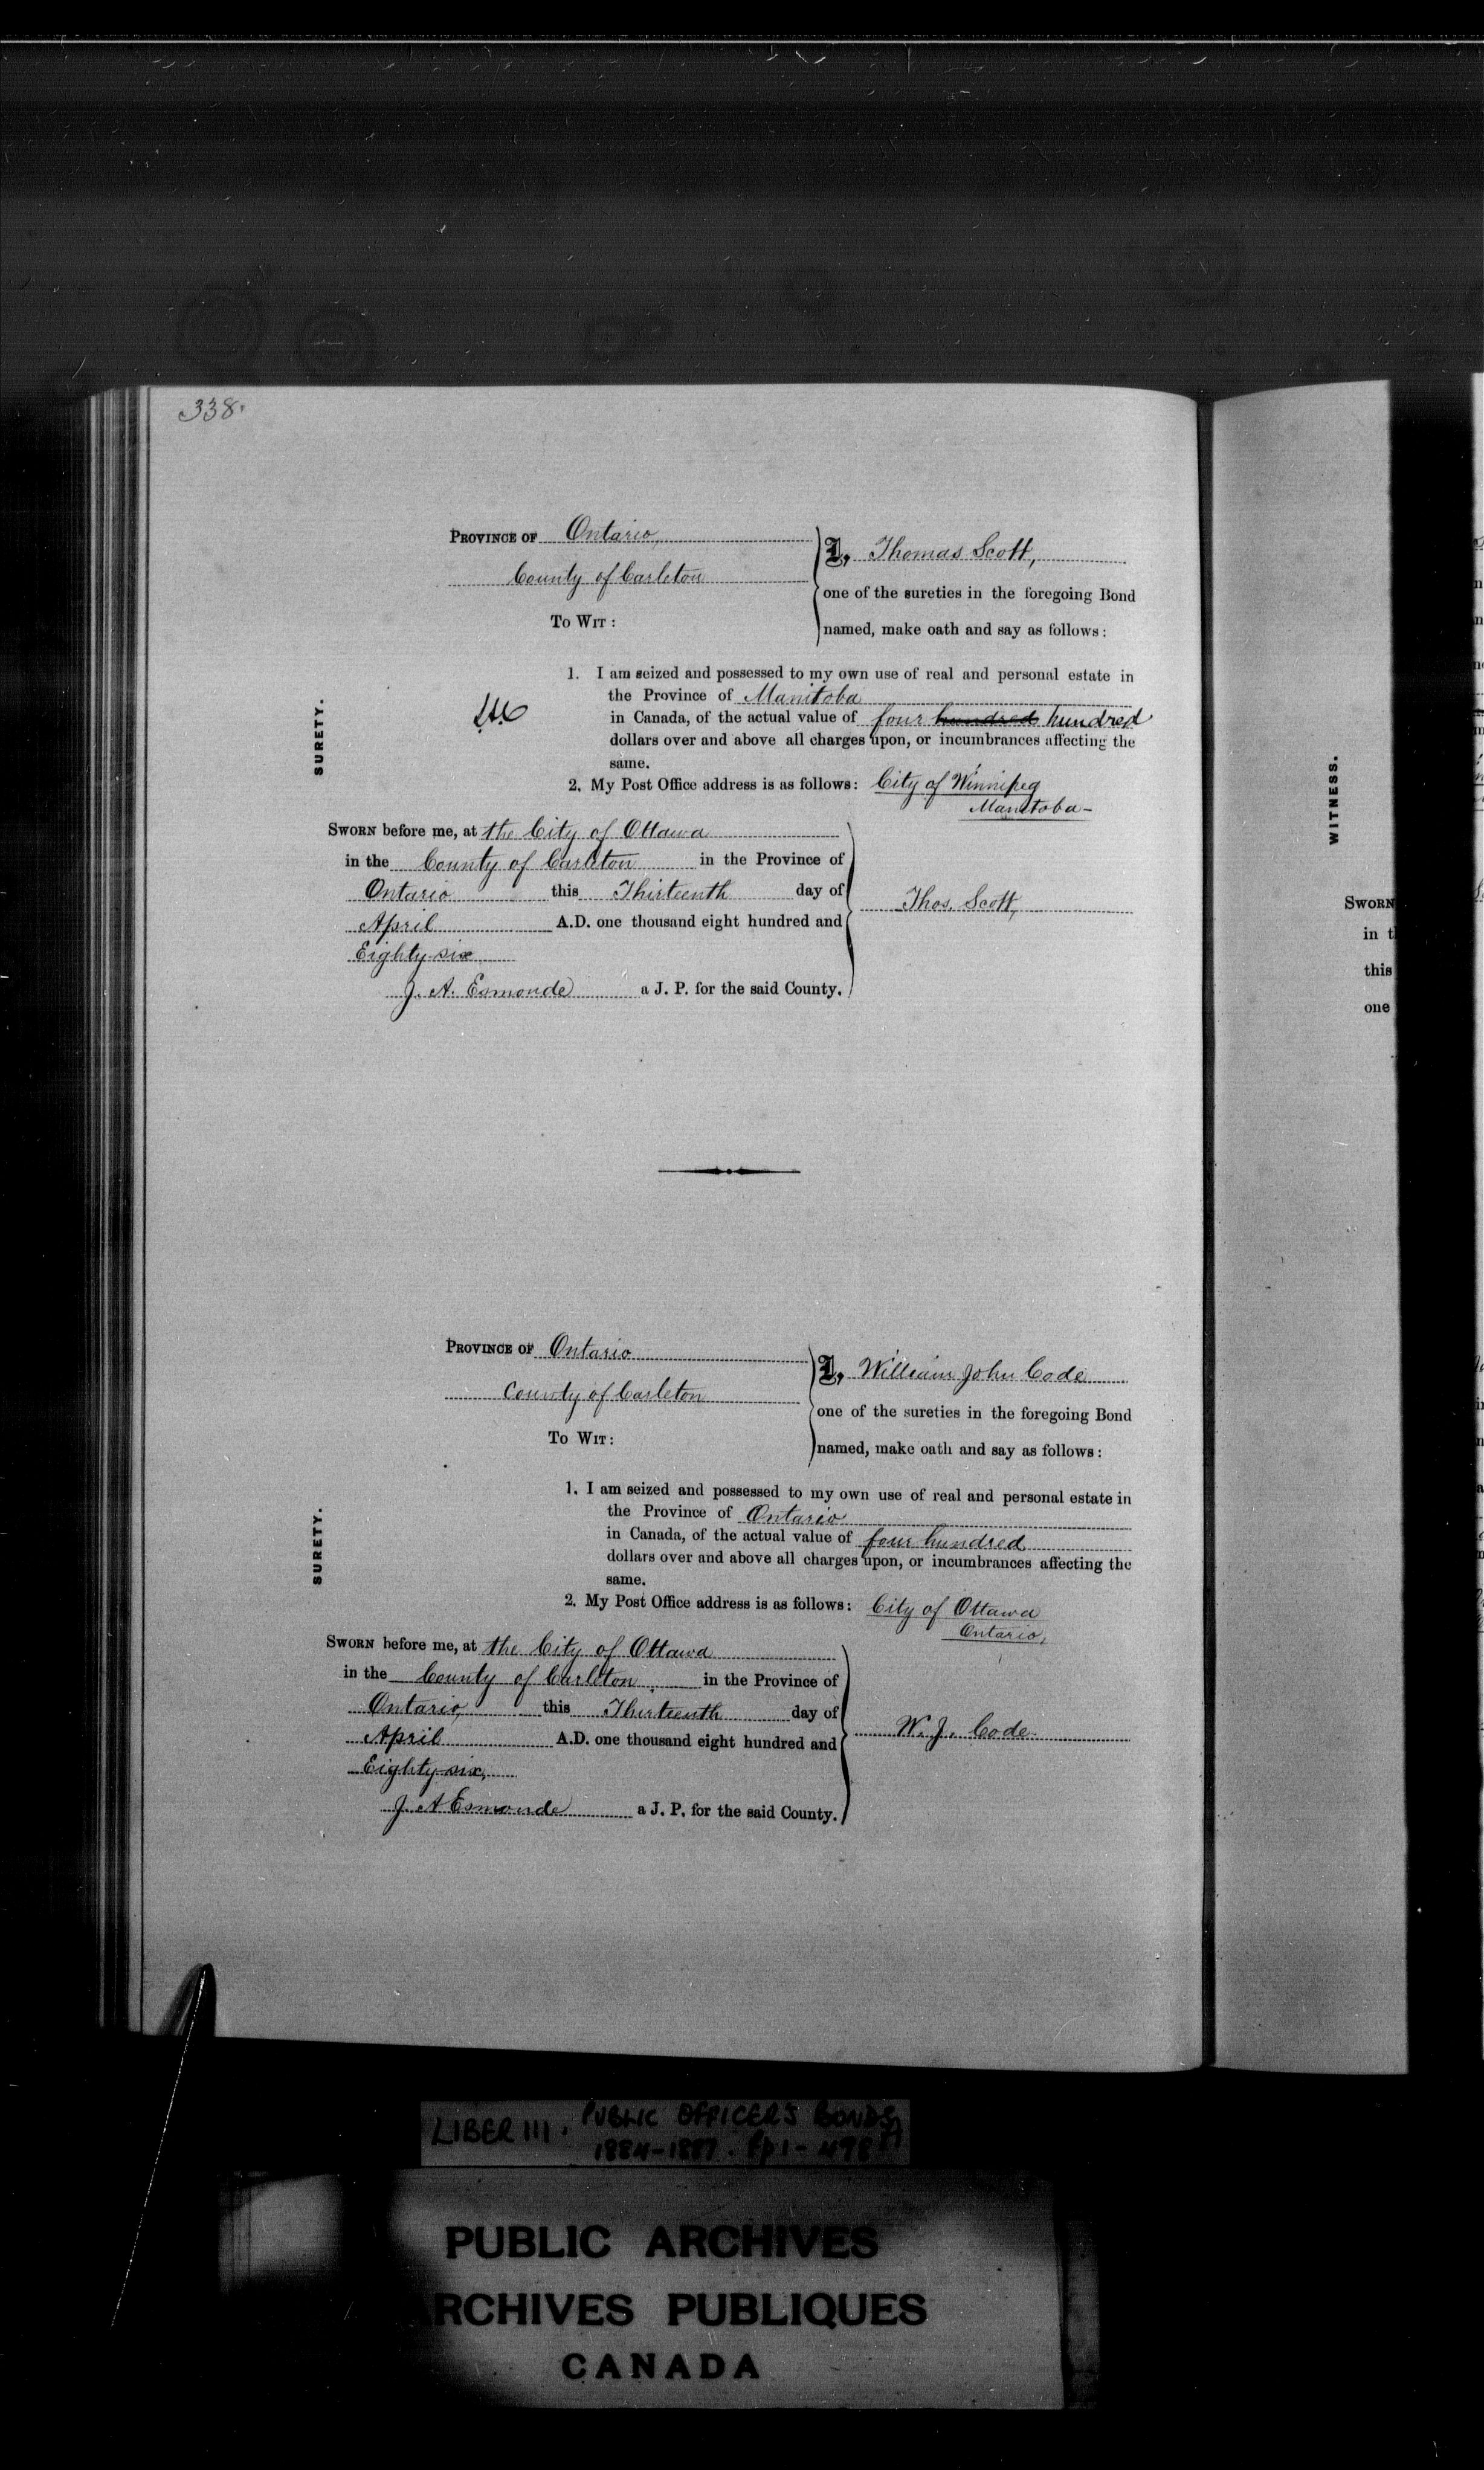 338.
PROVINCE OF Ontario,
County of Carleton
TO WIT:
I, Thomas Scott,
one of the sureties in the foregoing Bond
named, make oath and say as follows:
SURETY.
1. I am seized and possessed to my own use of real and personal estate in
the Province of Manitoba
in Canada, of the actual value of four hundred hundred
dollars over and above all charges upon, or incumbrances affecting the
same.
2. My Post Office address is as follows: City of Winnipeg
Manitoba-
SWORN before me, at the City of Ottawa
in the County of Carleton in the Province of
Ontario this Thirteenth day of
April A.D. one thousand eight hundred and
Eighty six
J. A. Esmonde a J. P. for the said County.
Thos. Scott,
PROVINCE OF Ontario
County of Carleton
TO WIT:
I, William John Code
one of the sureties in the foregoing Bond
named, make oath and say as follows:
SURETY.
1. I am seized and possessed to my own use of real and personal estate in
the Province of Ontario
in Canada, of the actual value of four hundred
dollars over and above all charges upon, or incumbrances affecting the
same.
2. My Post Office address is as follows: City of Ottawa
Ontario,
SWORN before me, at the City of Ottawa
in the County of Carleton in the Province of
Ontario, this Thirteenth day of
April A.D. one thousand eight hundred and
Eighty six,
J. A Esmonde a J. P. for the said County.
W. J. Code.
WITNESS.
SWORN
in t
this
one
LIBER III. PUBLIC OFFICERS BONDS
1884-1887. Pp 1-498
PUBLIC ARCHIVES
RCHIVES PUBLIQUES
CANADA